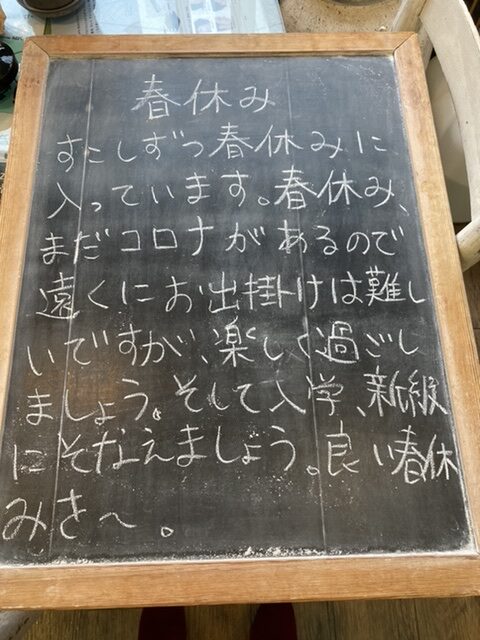 春休み
すこしずつ春休みに
入っています。春休み、
まだコロナがあるので
遠くにお出掛けは難し
いですが、楽しく過ごし
ましょう。そして入学、新級
にそなえましょう。良い春休
みを〜。